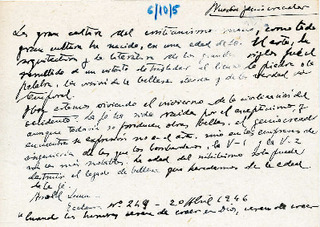 6/10/5
Nuestro genio creador
Los gran cultura del cristianismo como toda
gran cultura ha nacido, en una edad de fe. El arte, la
arquitectura y la literatura de los grandes siglos fué el
resultado de un intento de trasladar al lienzo, la piedra o la
palabra, la visión de la belleza eterna y de la verdad in
temporal.
Hoy estamos viviendo el invierno de la civilización del
occidente. La fe ha sido roida por el escepticismo, y
aunque todavía se producen obras bellas, el genio creador
encuentra su expresión no en el arte, sino en las empresas de
ingeniería de las que los bombarderos, la V-1 y la V-2
son las más notables. La edad del nihilismo sólo puede
destruir el legado de belleza que heredamos de la edad
de la fe.
Arnold Lunn
Ecclesia Nº 249 - 20 Abril 1946
"Cuando los hombres cesan de creer en Dios, cesan de creer